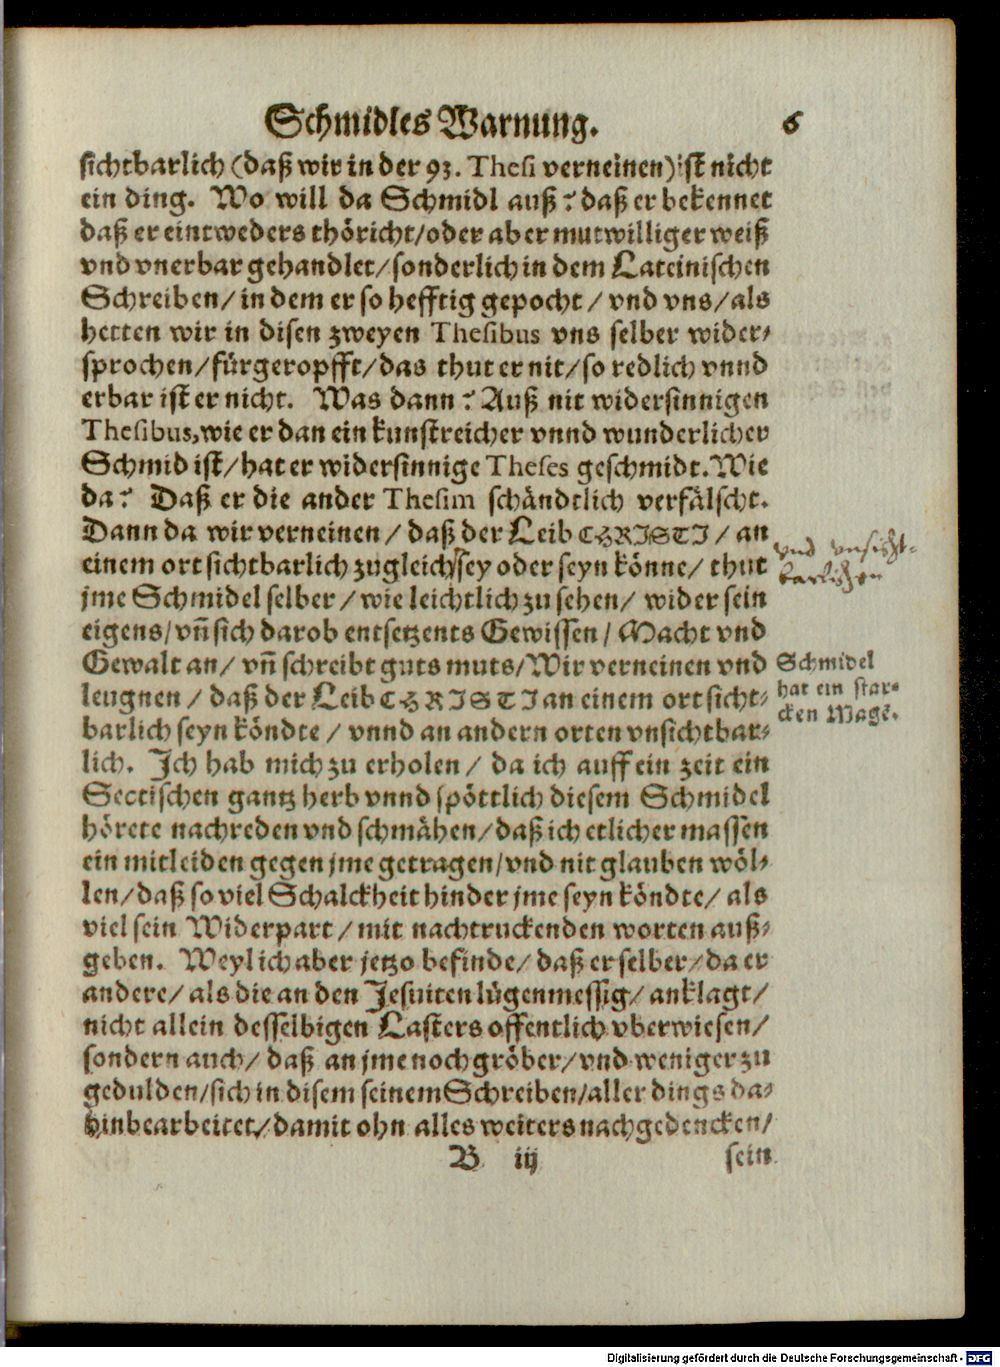 Schmidles Warnung. 6
sichtbarlich (daß wir in der 93. Thesi verneinen) ist nicht
ein ding. Wo will da Schmidl auß? daß er bekennet
daß er eintweders thöricht/oder aber mutwilliger weiß
vnd vnerbar gehandlet/sonderlich in dem Lateinischen
Schreiben/in dem er so hefftig gepocht/vnd vns/als
hetten wir in disen zweyen Thesibus vns selber wider-
sprochen/fürgeropfft/das thut er nit/so redlich vnnd
erbar ist er nicht. Was dann? Auß nit widersinnigen
Thesibus, wie er dan ein kunstreicher vnnd wunderlicher
Schmid ist/hat er widersinnige Theses geschmidt. Wie
da? Daß er die ander Thesim schändtlich verfälscht.
Dann da wir verneinen/daß der Leib CHRISTI/an
einem ort sichtbarlich zugleich sey oder seyn könne/thut
jme Schmidel selber/wie leichtlich zu sehen/wider sein
eigens/vñ sich darob entsetzents Gewissen/Macht vnd
Gewalt an/vñ schreibt guts muts/Wir verneinen vnd
leugnen/daß der Leib CHRISTI an einem ort sicht-
barlich seyn köndte/vnnd an andern orten vnsichtbar-
lich. Ich hab mich zu erholen/da ich auff ein zeit ein
Sectischen gantz herb vnnd spöttlich diesem Schmidel
hörete nachreden vnd schmähen/daß ich etlicher massen
ein mitleiden gegen jme getragen/vnd nit glauben wöl-
len/daß so viel Schalckheit hinder jme seyn köndte/als
viel sein Widerpart/mit nachtruckenden worten auß-
geben. Weyl ich aber jetzo befinde/daß er selber/da er
andere/als die an den Jesuiten lügenmessig/anklagt/
nicht allein desselbigen Lasters offentlich vberwiesen/
sondern auch/daß an jme noch gröber/vnd weniger zu
gedulden/sich in disem seinem Schreiben/aller dings da-
hin bearbeitet/damit ohn alles weiters nachgedencken/
B iij sein
vnd vnsicht-
barlichen
Schmidel
hat ein star-
cken Magē.
Digitalisierung gefördert durch die Deutsche Forschungsgemeinschaft - DFG